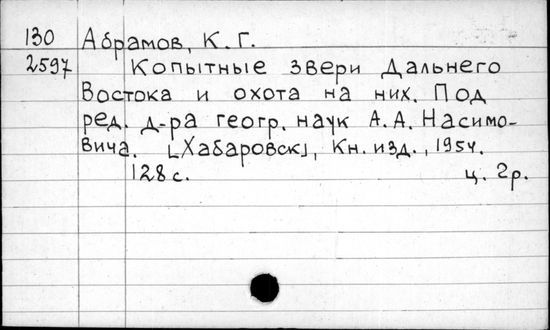 130 Абрамов, К. Г.
2597 Копытные звери Дальнего
Востока и охота на них. Под
ред. д-ра геогр. наук А. А. Насимо-
вича. [Хабаровск], Кн. изд., 1954.
128 с. ц. 2р.